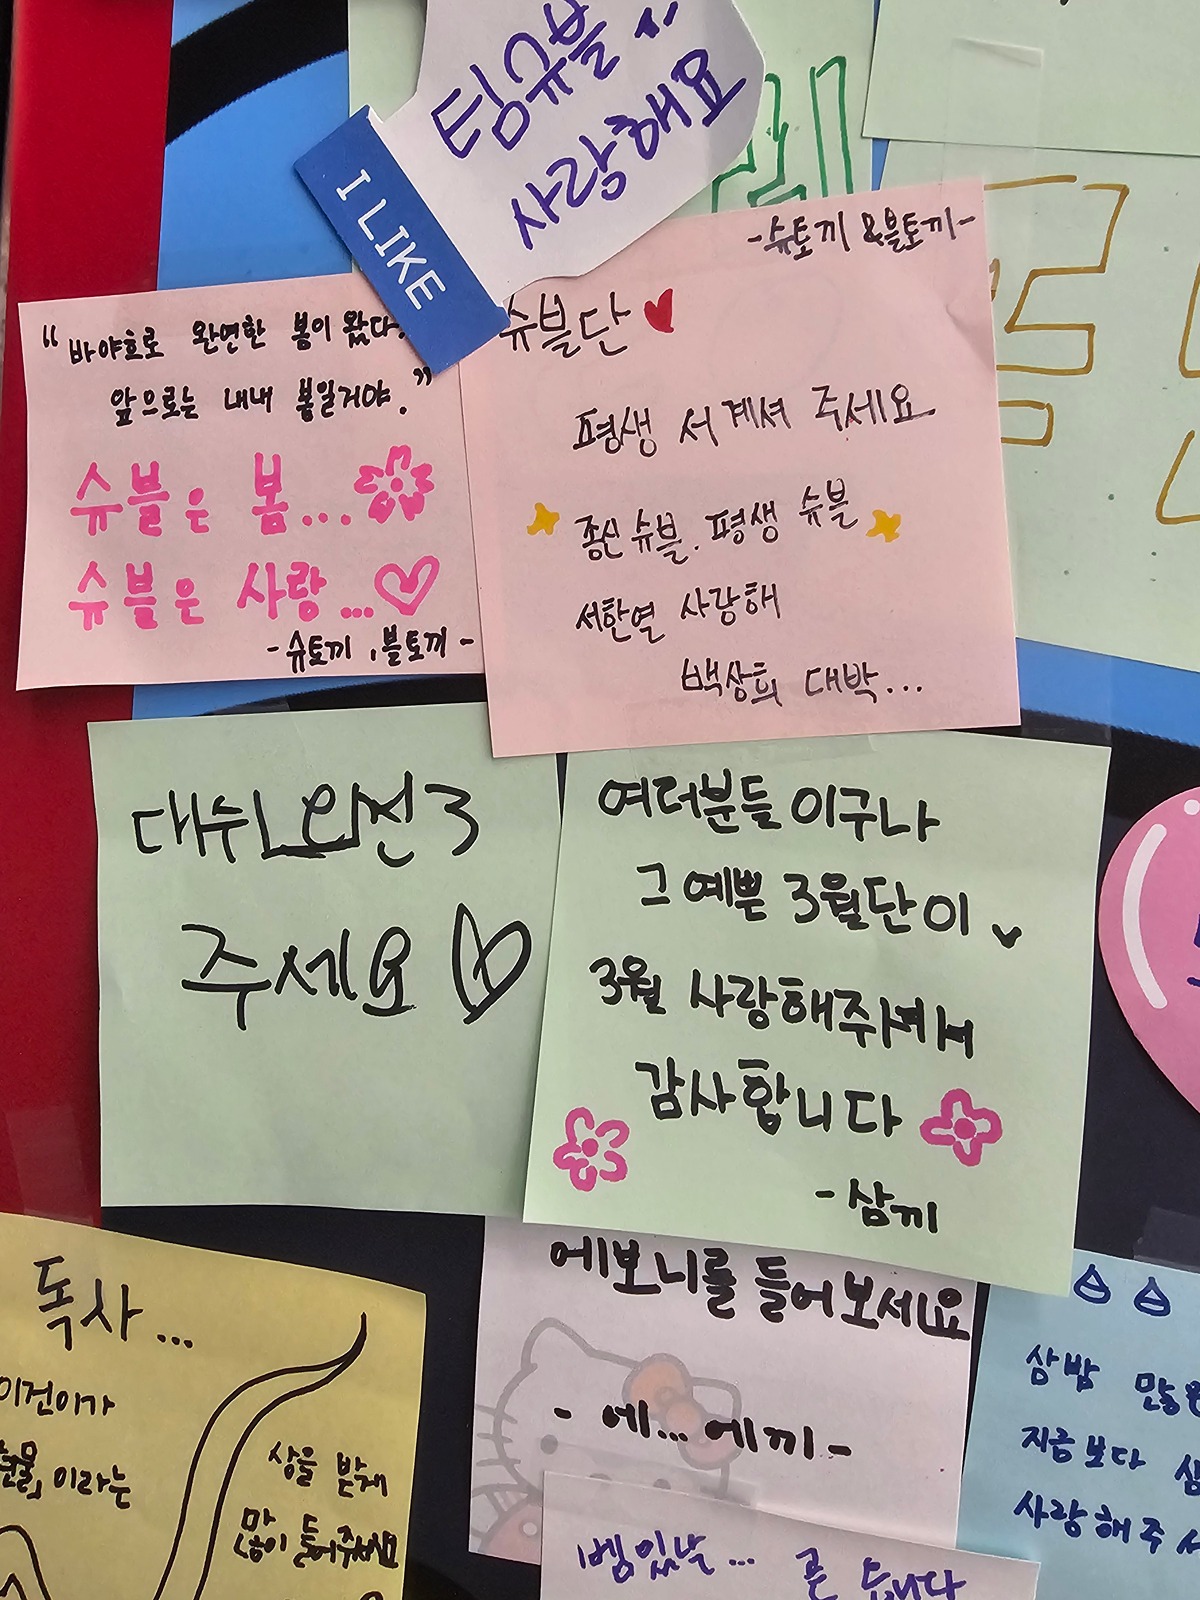 팀슈블
사랑해요
I LIKE
-슈토끼 &블토끼-
슈블단
평생 서 계셔 주세요
종신 슈블. 평생 슈블
서한열 사랑해
백상희 대박...
“ 바야흐로 완연한 봄이 왔다.
앞으로는 내내 봄일거야.”
슈블은 봄...
슈블은 사랑...
-슈토끼, 블토끼-
3
주세요
여러분들 이구나
그 예쁜 3월단이
3월 사랑해주셔서
감사합니다
-삼끼
독사...
이건이가
이라는
상을 받게
많이 들어주세요
에보니를 들어보세요
- 에... 에끼 -
삼밤
지금보다
사랑해주
뱀있날... 곧 옵니다